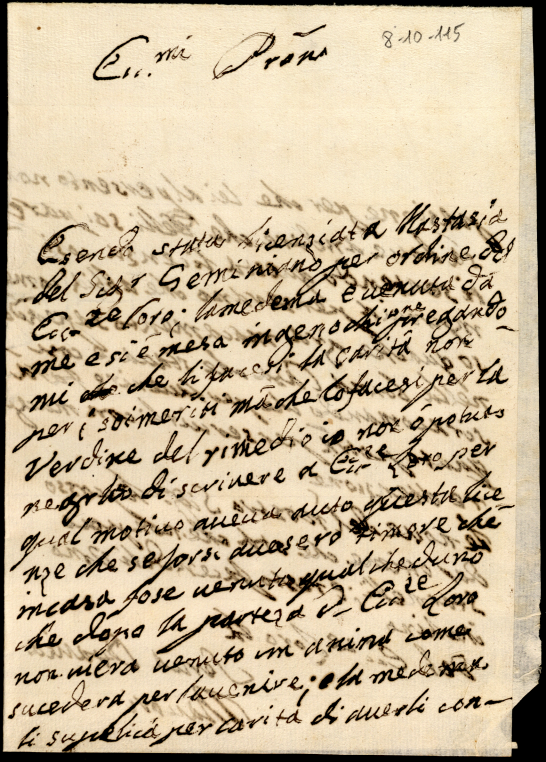 8-10-115
Ecc.mi Pròni
Esendo stata licensiata Nastasia
del Sig.r Geminiano per ordine del
Ecc.ze Loro; la medema e venuta da
me e si è mesa ingenochione pregando
mi che li facesi la carità non
per i soi meriti mà che lo facesi per la
Verdine del rimedio io non ò potuto
negarlio di scrivere a Ecc.ze Loro per
qual motivo aveva auto questa lice
nze che se forsi avesero timore che
in casa fose venuto qualcheduno
che dopo la parteza di Ecc.ze Loro
non viera venuto un anima come
sucederà per lavenire; e la medema
li suplica per carità di averli con-